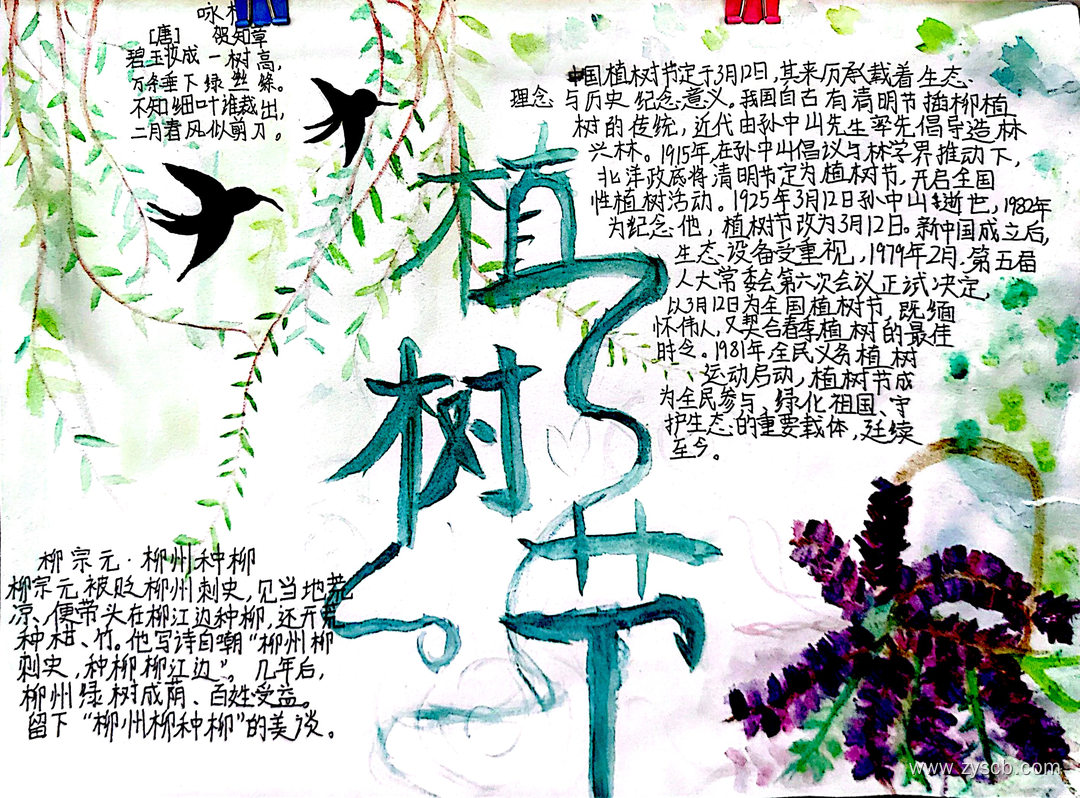 咏柳
[唐] 贺知章
碧玉妆成一树高,
万条垂下绿丝绦。
不知细叶谁裁出,
二月春风似剪刀。
植
树
节
中国植树节定于3月12日,其来历承载着生态
理念与历史纪念意义。我国自古有清明节插柳植
树的传统,近代由孙中山先生率先倡导造林
兴林。1915年,在孙中山倡议与林学界推动下,
北洋政府将清明节定为植树节,开启全国
性植树活动。1925年3月12日孙中山逝世,1982年
为纪念他,植树节改为3月12日。新中国成立后,
生态设备受重视,1979年2月.第五届
人大常委会第六次会议正试决定,
以3月12日为全国植树节,既缅
怀伟人,又契合春季植树的最佳
时令。1981年全民义务植树
运动启动,植树节成
为全民参与、绿化祖国、守
护生态的重要载体,延续
至今。
柳宗元·柳州种柳
柳宗元被贬柳州刺史,见当地荒
凉、便带头在柳江边种柳,还开荒
种柑、竹。他写诗自嘲“柳州柳
刺史,种柳柳江边”。几年后,
柳州绿树成阴、百姓受益。
留下“柳州柳种柳”的美谈。
www.zyscb.com